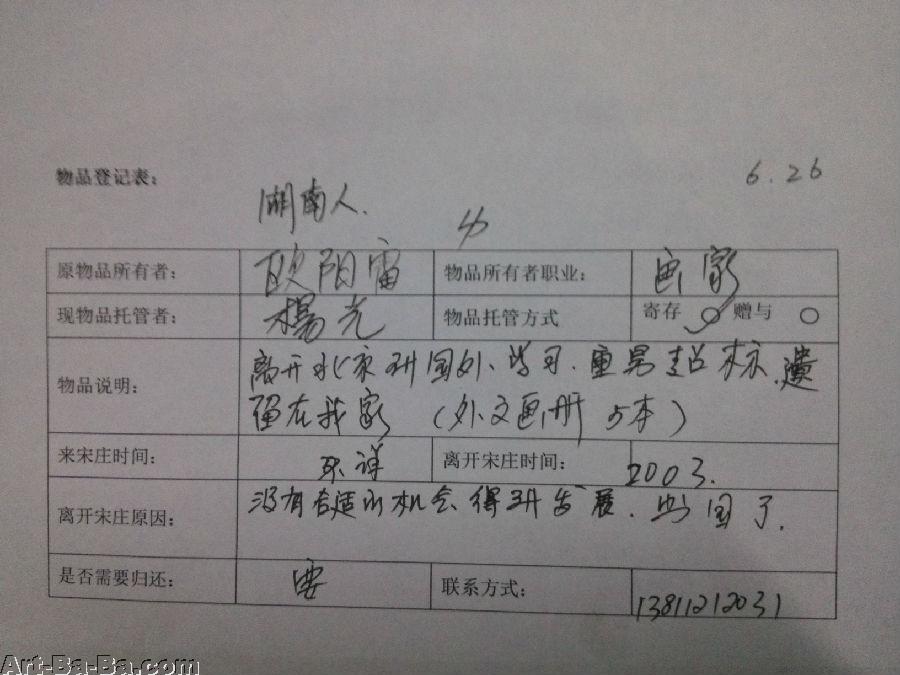 物品登记表： 6.26
湖南人.
原物品所有者： 欧阳雷 物品所有者职业： 画家
现物品托管者： 楊光 物品托管方式 寄存 ○ 赠与 ○
物品说明： 离开北京到国外、学习.
留在我家 （外文画册 5本）
来宋庄时间： 不详 离开宋庄时间： 2003.
离开宋庄原因： 没有合适的机会得到发展. 出国了.
是否需要归还： 要 联系方式： 13811212031
Art-Ba-Ba.com